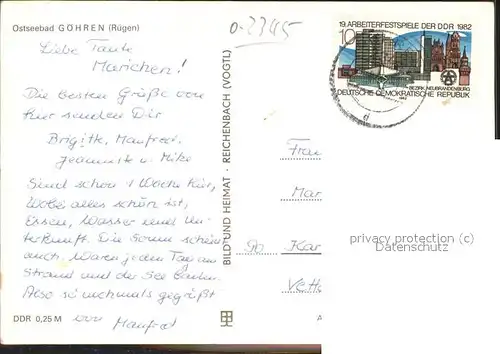 Ostseebad GÖHREN (Rügen)
0-2345
19. ARBEITERFESTSPIELE DER DDR 1982
10
BEZIRK NEUBRANDENBURG
DEUTSCHE DEMOKRATISCHE REPUBLIK
Liebe Tante
Mariechen!
Die besten Grüße von
hier senden Dir
Brigitte, Manfred,
Jeannette u. Mike
Sind schon 1 Woche hier,
Wobei alles schön ist,
Essen, Wasser und Un-
terkunft. Die Sonne scheint
auch. Waren jeden Tag am
Strand und der See baden.
Also so nochmals gegrüßt
von Manfred
BILD UND HEIMAT · REICHENBACH (VOGTL)
Frau
Mar
Kar
DDR 0,25 M
A
privacy protection (c)
Veterama